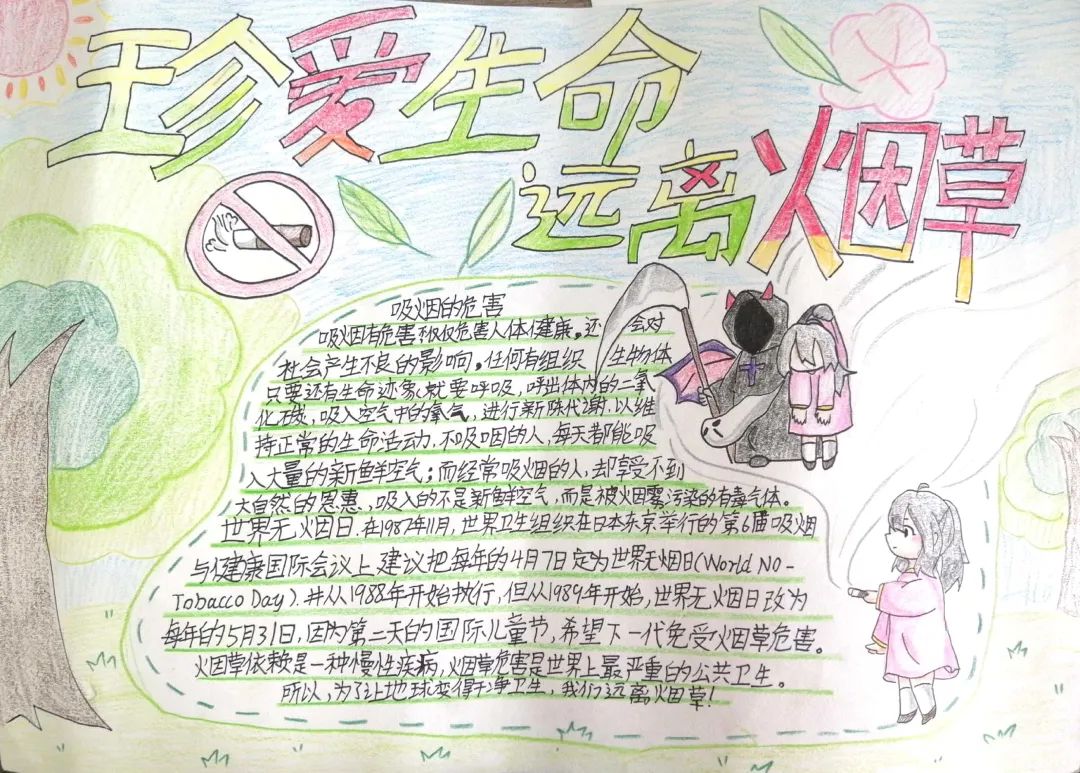 珍爱生命
远离烟草
吸烟的危害
吸烟有危害不仅仅危害人体健康。还会对
社会产生不良的影响。任何有组织生物体
只要还有生命迹象,就要呼吸,呼出体内的二氧
化碳,吸入空气中的氧气,进行新陈代谢.以维
持正常的生命活动.不吸因的人,每天都能吸
入大量的新鲜空气;而经常吸烟的人,却享受不到
大自然的恩惠、吸入的不是新鲜空气,而是被烟雾污染的有毒气体。
世界无烟日.在1987年11月,世界卫生组织在日本东京举行的第6届吸烟
与健康国际会议上建议把每年的4月7日定为世界无烟日(World No-
Tobacco Day).并从1988年开始执行,但从1989年开始,世界无烟日改为
每年的5月31日,因为第二天的国际儿童节,希望下一代免受烟草危害。
烟草依赖是一种慢性疾病,烟草危害是世界上最严重的公共卫生。
所以,为了让地球变得干净卫生,我们远离烟草!